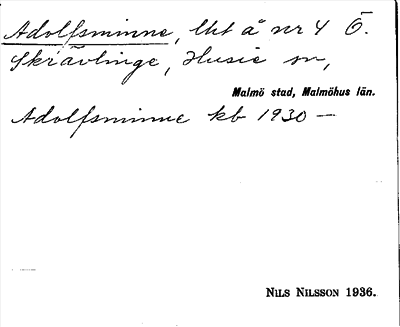 Adolfsminne, lht å nr 4 Ö.
Skrävlinge, Husie sn,
Malmö stad, Malmöhus län.
Adolfsminne kb 1930 —
NILS NILSSON 1936.